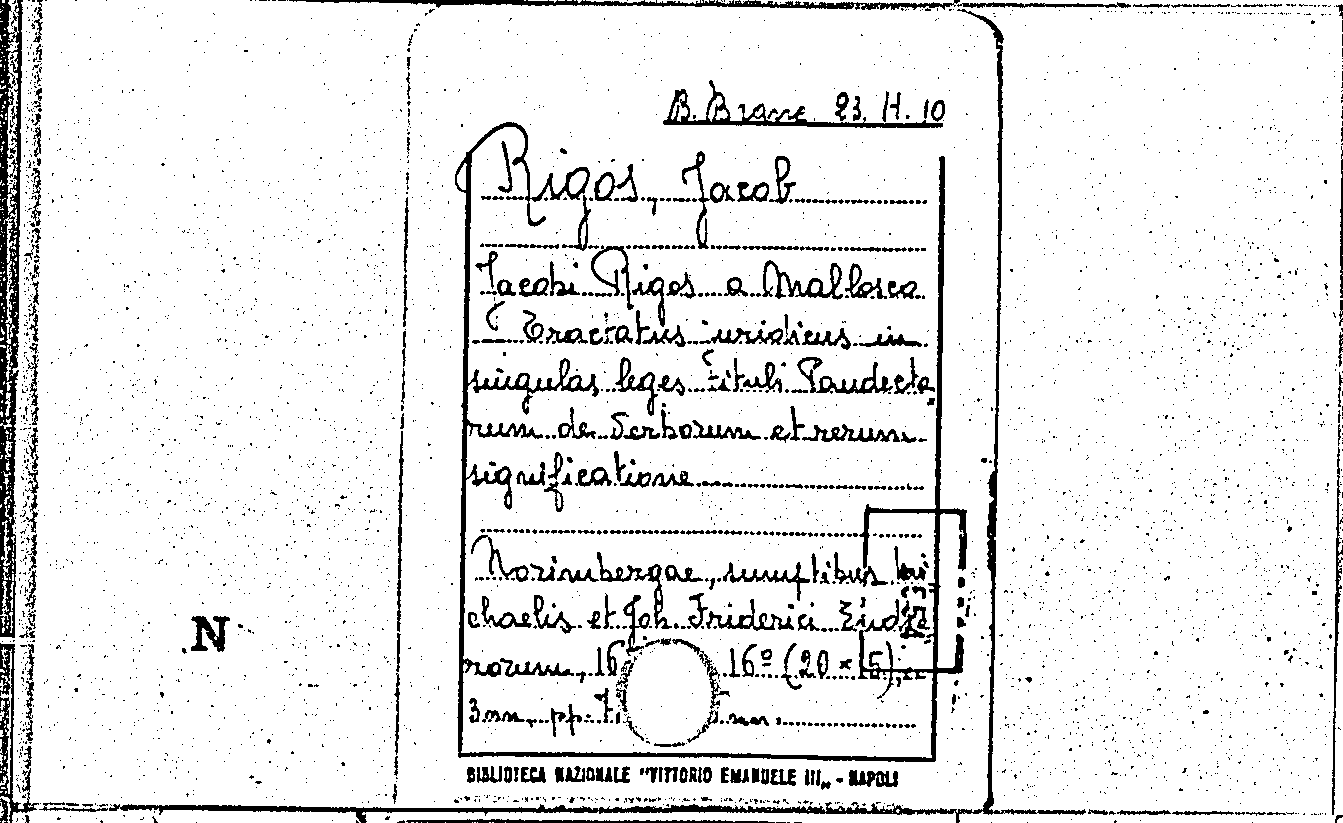 B. Branc. 23. H. 10
Rigos, Jacob
Jacobi Rigos a Mallosca
Tractatus iuridicus in
singulas leges tituli Pandecta
rum de Verborum et rerum
significatione
Norimbergae, sumptibus Mi
chaelis et Joh. Friderici Endte
rorum, 16 16º (20 × 15),
3nn. pp. nn.
N
BIBLIOTECA NAZIONALE "VITTORIO EMANUELE III„ - NAPOLI